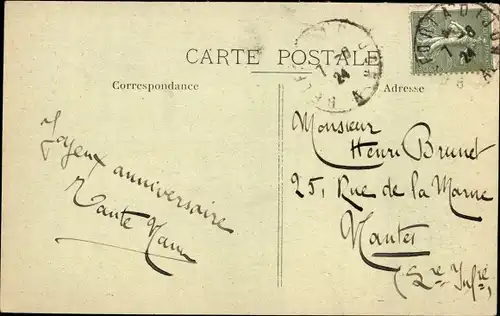 CARTE POSTALE
Correspondance
Adresse
Joyeux anniversaire
Tante
Monsieur
Henri Brunet
25, Rue de la Marne
Nantes
(Lre Infre)
7 -8
24